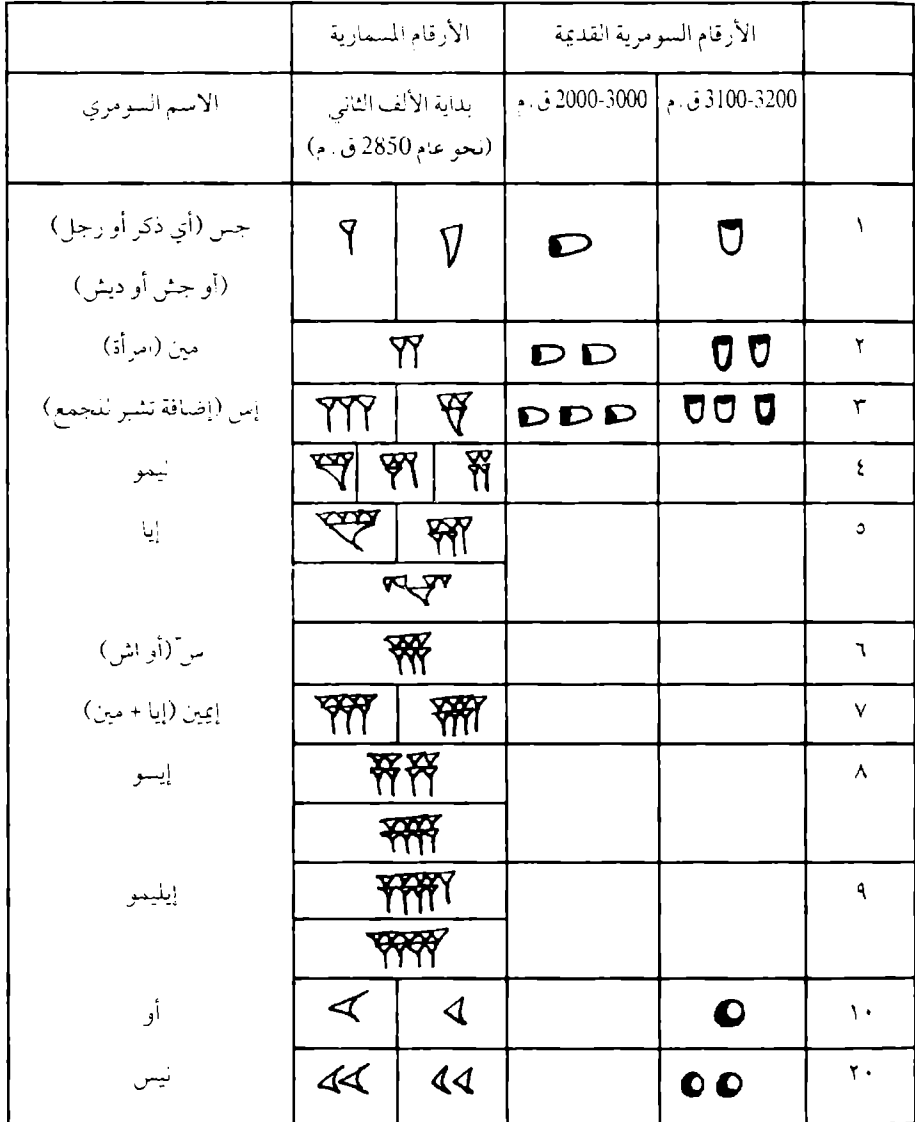 الأرقام السومرية القديمة
الأرقام المسمارية
3200-3100 ق . م
3000-2000 ق . م
بداية الألف الثاني
(نحو عام 2850 ق . م)
الاسم السومري
١
جس (أي ذكر أو رجل)
(أو جش أو ديش)
٢
مين (امرأة)
٣
إس (إضافة تشير للجمع)
٤
ليمو
٥
إيا
٦
سّ (أو اش)
٧
إيمين (إيا + مين)
٨
إيسو
٩
إيليمو
١٠
أو
٢٠
نيس